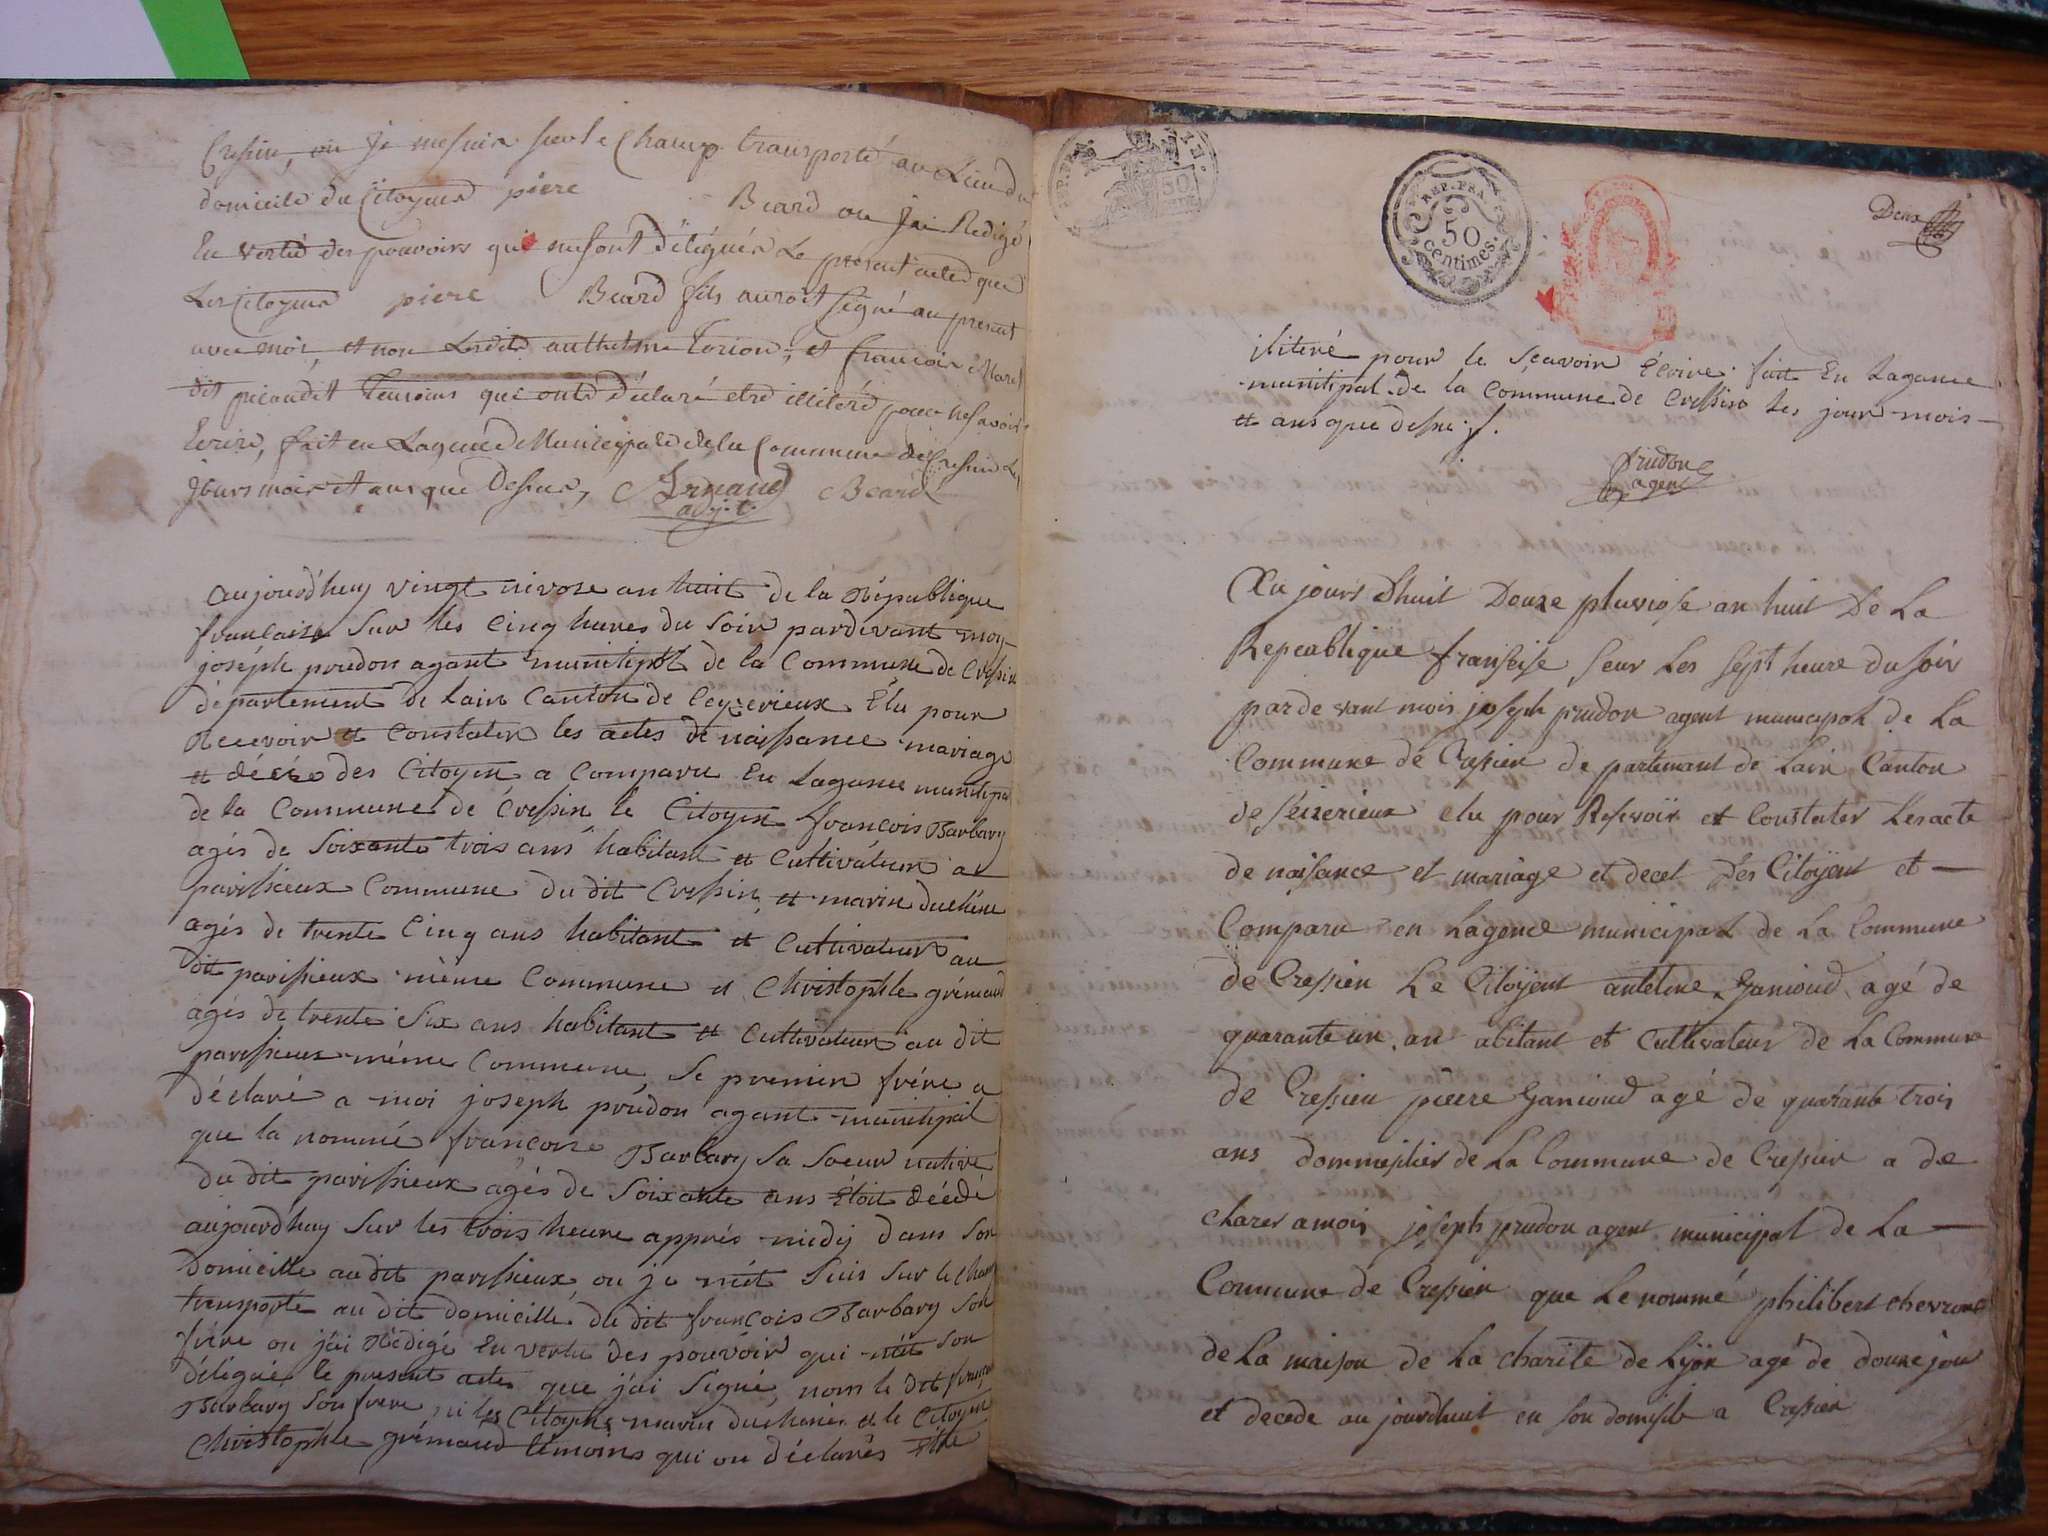 Cressin, ou je mesuis sur le Champ transporté au Lieu du
domicile du Citoyens piere Beard ou jai Redigé
En vertud des pouvoirs qui mesont Délégués Le présent acte que
Les Citoyens piere Beard fils auroit signé au present
avec moi, et non Lesdits anthelme Torion, et francois Maret
dit picaudet Temoins qui onte déclaré etre illiteré pour ne savoir
Ecrire, fait en Lagence Municipale de la Commune de Cressin Les
Jours mois et ans que Dessus, Arnaud Beard
adj.t.
aujourd'huy vingt nivose an huit de la République
francaise Sur les Cinq heures du Soir pardevant moy
joséph prudon agant munitipal de la Commune de Cressin
département de Lain Canton de Ceyzerieux Élu pour
Recevoir et Constater les actes de naissance mariage
et décés des Citoyen a Comparu En Lagance munitipal
de la Commune de Cressin le Citoyen francois Barbary
agés de Soixante trois ans habitant et Cultivateur a
parissieux Commune du dit Cressin, et marin Duchene
agés de trente Cinq ans habitant et Cultivateur au
dit parissieux même Commune et Christophle grémaud
agés de trente Six ans habitant et Cultivateur au dit
parissieux même Commune, Le premier frére a
déclaré a moi joseph prudon agant munitipal
que la nommé francoise Barbary Sa Soeur native
du dit parissieux agés de Soixante ans Étoit décédé
aujourd'huy Sur les trois heure apprés midy dans Son
Domicille au dit parissieux, ou je mét Suis Sur le Cham
transporte au dit domicille du dit françois Barbary Son
frére ou j'ai Rédigé En vertu des pouvoir qui mét Son
délégué le présent actes que j'ai Signé, nom le dit françois
Barbary Son frere, ni les Citoyens marin duchene et le Citoyen
Christophle grémaud témoins qui on déclarés Etre
REP. FRA.
50
REP. FRA.
50
Centimes.
Deux
iliteré pour le Sçavoir Écrire fait En Lagance
munitipal de la Commune de Cressin les jour mois
et ans que dessus
Prudon
agent
Au jours dhuit Douze pluviose an huit De La
Repeablique franseise seur Les sept heure du soir
parde vant mois joseph prudon agent municipal de La
Commune de Cressien de partemant de Lain Canton
de seizerieux elu pour Resevoir et Constater Les acte
de naisance et mariage et decet Des Citoÿent et
Comparu en Lagence municipal de La Commune
de Cressien Le Citoÿent antelme Ganioud agé de
quarante un an abitant et Cultivateur de La Commune
de Cressien pierre Ganioud agé de quarante trois
ans dommestier de La Commune de Cressien a de
clarer a mois joseph prudon agent municipal de La
Commune de Cressien que Le nommé philibert chevrone
de La maison de La charite de Lÿon agé de douze jour
et decede au jourdhuit en son domisile a Cressien